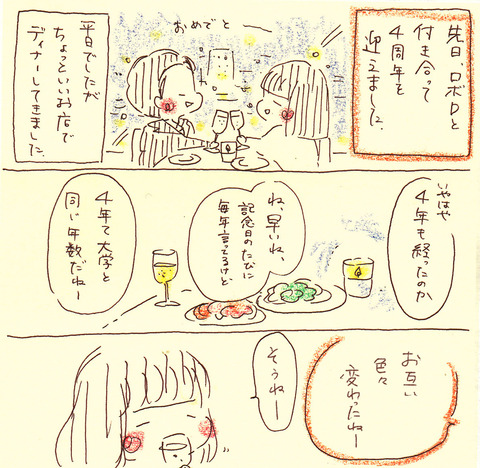 先日、ロボロと
付き合って
4周年を
迎えました。
おめでと
平日でしたが
ちょっといいお店で
ディナーしてきました。
いやはや
4年も経ったのか
ね、早いね、
記念日のたびに
毎年言ってるけど
4年て大学と
同じ年数だねー
お互い
色々
変わったねー
そうねー